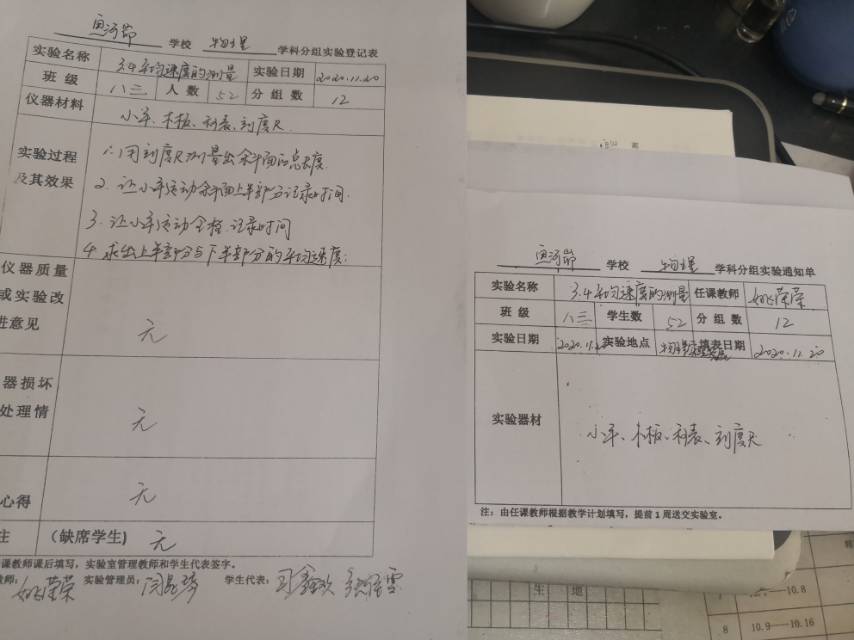 鱼河峁 学校 物理 学科分组实验登记表
实验名称 3.4平均速度的测量 实验日期 2020.11.20
班 级 八三 人 数 52 分 组 数 12
仪器材料 小车、木板、秒表、刻度尺
实验过程
及其效果
1.用刻度尺测量出斜面的总长度
2.让小车运动斜面上半部分记录时间.
3.让小车运动全程.记录时间
4.求出上半部分与下半部分的平均速度:
仪器质量
或实验改
进意见
无
器损坏
处理情
无
心得
无
注 (缺席学生) 无
课教师课后填写,实验室管理教师和学生代表签字。
教师: 姚荣荣 实验管理员: 学生代表:
鱼河峁 学校 物理 学科分组实验通知单
实验名称 3.4平均速度的测量 任课教师 姚荣荣
班 级 八三 学生数 52 分 组 数 12
实验日期 2020.11.2 实验地点 填表日期 2020.11.20
实验器材 小车、木板、秒表、刻度尺
注:由任课教师根据教学计划填写,提前1周送交实验室。
生 地
10.8
8 10.9—10.16